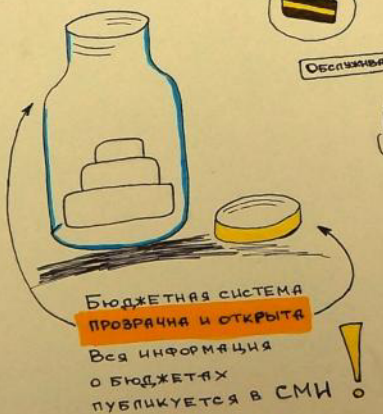 Обслужива
Бюджетная система
прозрачна и открыта
Вся информация
о бюджетах
публикуется в СМИ!